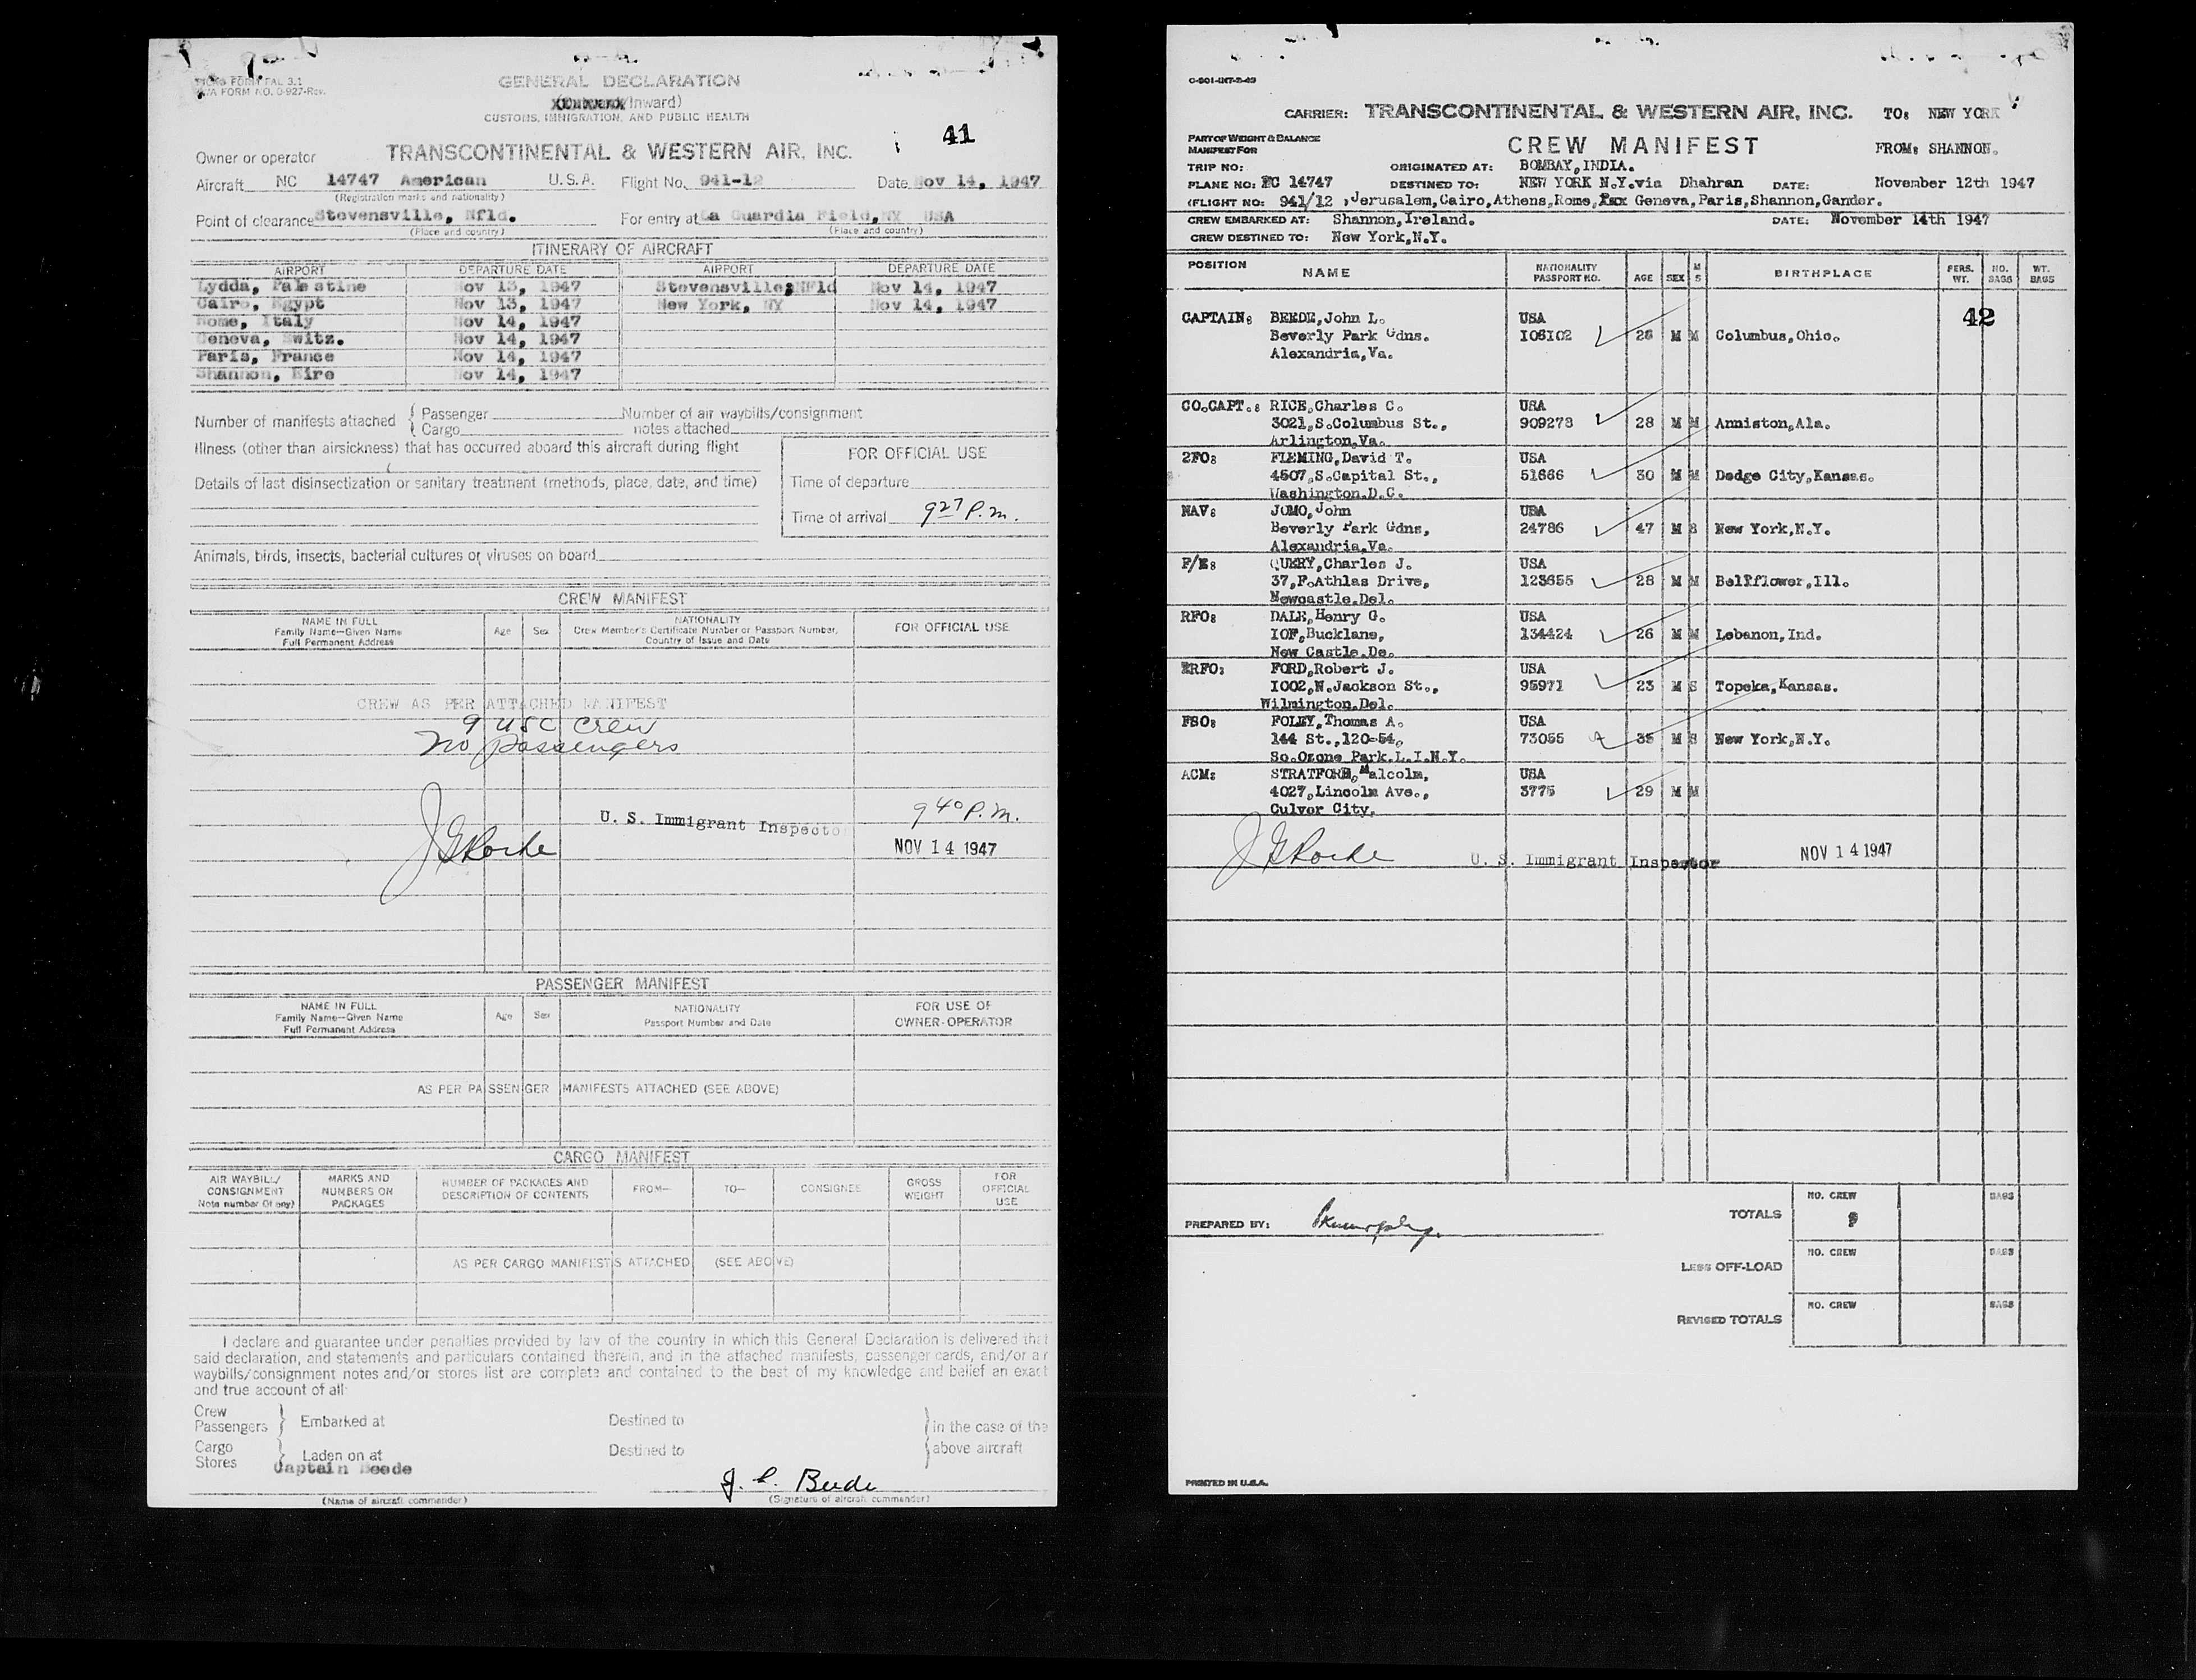 GENERAL DECLARATION
TWA FORM NO. 0-927-Rev.
(Outward/Inward)
CUSTOMS, IMMIGRATION, AND PUBLIC HEALTH
41
Owner or operator TRANSCONTINENTAL & WESTERN AIR, INC.
Aircraft NC 14747 American U.S.A. Flight No. 941-12 Date Nov 14, 1947
(Registration marks and nationality)
Point of clearance Stevensville, Nfld. For entry at La Guardia Field, NY USA
(Place and country) (Place and country)
ITINERARY OF AIRCRAFT
AIRPORT DEPARTURE DATE AIRPORT DEPARTURE DATE
Lydda, Palestine Nov 13, 1947 Stevensville, Nfld Nov 14, 1947
Cairo, Egypt Nov 13, 1947 New York, NY Nov 14, 1947
Rome, Italy Nov 14, 1947
Geneva, Switz. Nov 14, 1947
Paris, France Nov 14, 1947
Shannon, Eire Nov 14, 1947
Number of manifests attached { Passenger Number of air waybills/consignment
Cargo notes attached
Illness (other than airsickness) that has occurred aboard this aircraft during flight
Details of last disinsectization or sanitary treatment (methods, place, date, and time)
FOR OFFICIAL USE
Time of departure
Time of arrival 9 27 P.m.
Animals, birds, insects, bacterial cultures or viruses on board
CREW MANIFEST
NAME IN FULL
Family Name—Given Name
Full Permanent Address
Age Sex
NATIONALITY
Crew Member's Certificate Number or Passport Number,
Country of Issue and Date
FOR OFFICIAL USE
CREW AS PER ATTACHED MANIFEST
9 USC Crew
No passengers
U. S. Immigrant Inspector 9 40 P.m.
NOV 14 1947
PASSENGER MANIFEST
NAME IN FULL
Family Name—Given Name
Full Permanent Address
Age Sex
NATIONALITY
Passport Number and Date
FOR USE OF
OWNER-OPERATOR
AS PER PASSENGER MANIFESTS ATTACHED (SEE ABOVE)
CARGO MANIFEST
AIR WAYBILL/
CONSIGNMENT
Note number (if any)
MARKS AND
NUMBERS ON
PACKAGES
NUMBER OF PACKAGES AND
DESCRIPTION OF CONTENTS
FROM— TO— CONSIGNEE
GROSS
WEIGHT
FOR
OFFICIAL
USE
AS PER CARGO MANIFESTS ATTACHED (SEE ABOVE)
I declare and guarantee under penalties provided by law of the country in which this General Declaration is delivered that
said declaration, and statements and particulars contained therein, and in the attached manifests, passenger cards, and/or air
waybills/consignment notes and/or stores list are complete and contained to the best of my knowledge and belief an exact
and true account of all:
Crew
Passengers } Embarked at Destined to } in the case of the
Cargo
Stores } Laden on at Destined to } above aircraft
Captain Beede J. L. Beede
(Name of aircraft commander) (Signature of aircraft commander)
CARRIER: TRANSCONTINENTAL & WESTERN AIR, INC. TO: NEW YORK
PART OF WEIGHT & BALANCE
MANIFEST FOR
CREW MANIFEST FROM: SHANNON.
TRIP NO: ORIGINATED AT: BOMBAY, INDIA.
PLANE NO: NC 14747 DESTINED TO: NEW YORK N.Y. via Dhahran DATE: November 12th 1947
(FLIGHT NO: 941/12 ,Jerusalem,Cairo,Athens,Rome, Geneva,Paris,Shannon,Gander.
CREW EMBARKED AT: Shannon,Ireland. DATE: November 14th 1947
CREW DESTINED TO: New York,N.Y.
POSITION NAME NATIONALITY PASSPORT NO. AGE SEX M S BIRTHPLACE PERS. WT. NO. BAGS WT. BAGS
42
CAPTAIN: BEEDE,John L. USA
Beverly Park Gdns. I06I02 28 M M Columbus,Ohio.
Alexandria,Va.
CO.CAPT.: RICE,Charles C. USA
3021,S.Columbus St., 909273 28 M M Anniston,Ala.
Arlington,Va.
2FO: FLEMING,David T. USA
4507,S.Capital St., 51666 30 M M Dodge City,Kansas.
Washington.D.C.
NAV: JOMO,John USA
Beverly Park Gdns, 24786 47 M S New York,N.Y.
Alexandria,Va.
F/E: QUERY,Charles J. USA
37,F.Athlas Drive, 123655 28 M M Bellflower,Ill.
Newcastle.Del.
RFO: DALE,Henry G. USA
IOF,Bucklane, 134424 26 M M Lebanon,Ind.
New Castle.De.
RFO: FORD,Robert J. USA
I002,N.Jackson St., 95971 23 M S Topeka,Kansas.
Wilmington.Del.
FSO: FOLEY,Thomas A. USA
144 St.,120-54, 73055 35 M S New York,N.Y.
So.Ozone Park.L.I.N.Y.
ACM: STRATFORD,Malcolm, USA
4027,Lincoln Ave., 3775 29 M M
Culver City.
U. S. Immigrant Inspector NOV 14 1947
PREPARED BY:
TOTALS NO. CREW 9 BAGS
LESS OFF-LOAD NO. CREW BAGS
REVISED TOTALS NO. CREW BAGS
PRINTED IN U.S.A.